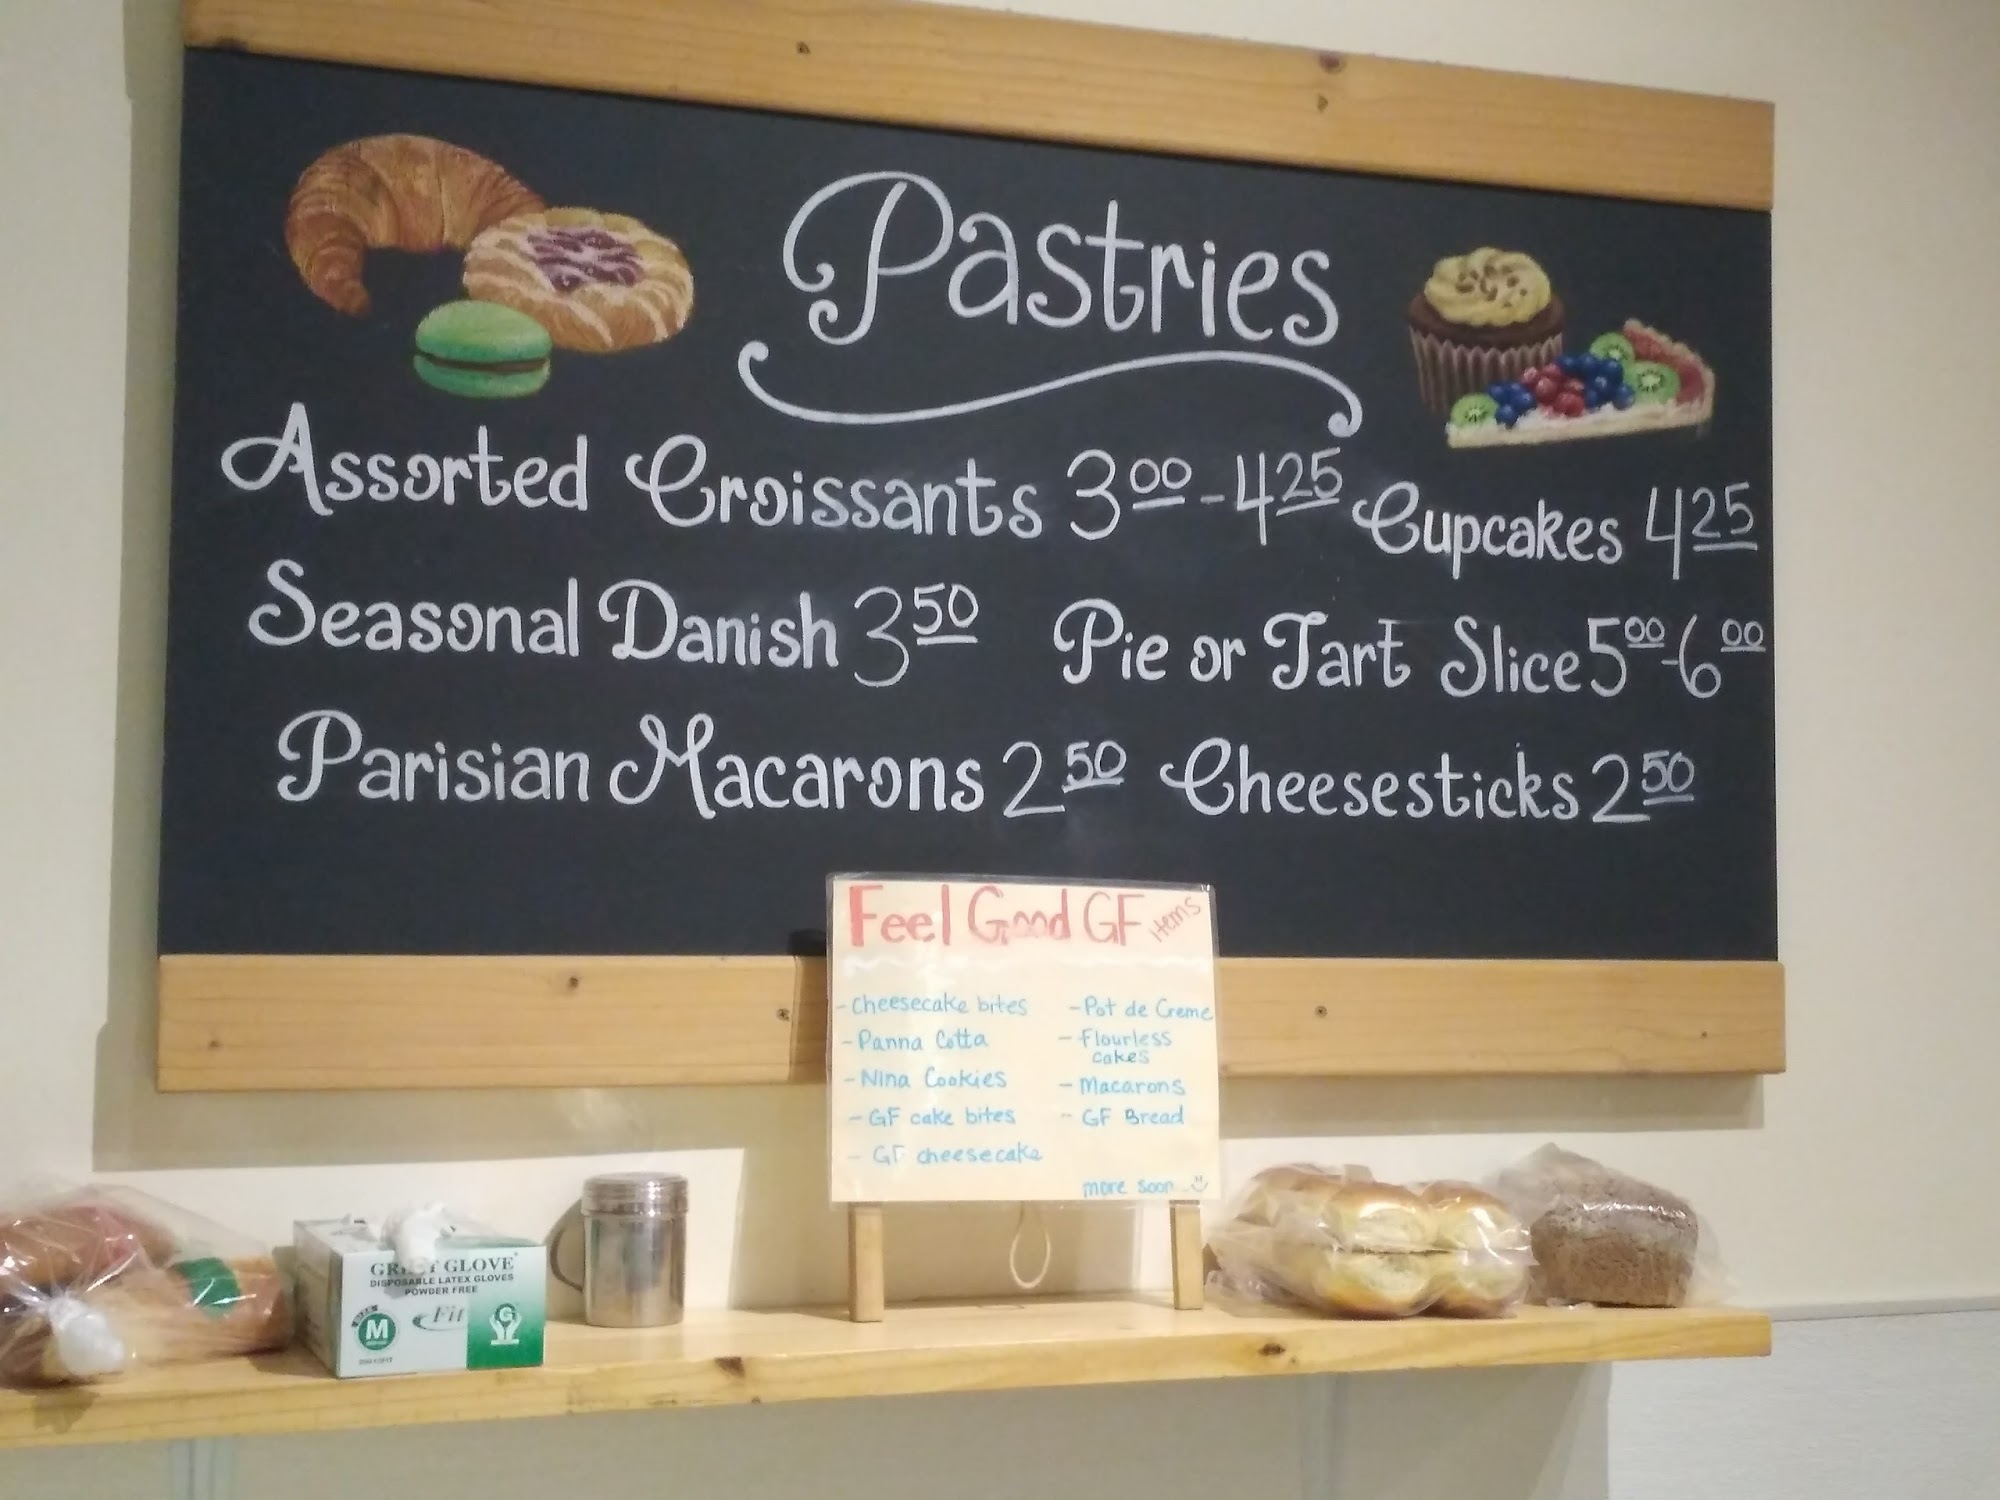 Pastries
Assorted Croissants 3 00 - 4 25
Cupcakes 4 25
Seasonal Danish 3 50
Pie or Tart Slice 5 00 - 6 00
Parisian Macarons 2 50
Cheesesticks 2 50
Feel Good GF Items
- Cheesecake bites
- Panna Cotta
- Nina Cookies
- GF cake bites
- GF cheesecake
- Pot de Creme
- Flourless
cakes
- Macarons
- GF Bread
more soon
GLOVE
DISPOSABLE LATEX GLOVES
POWDER FREE
M
Fit
G